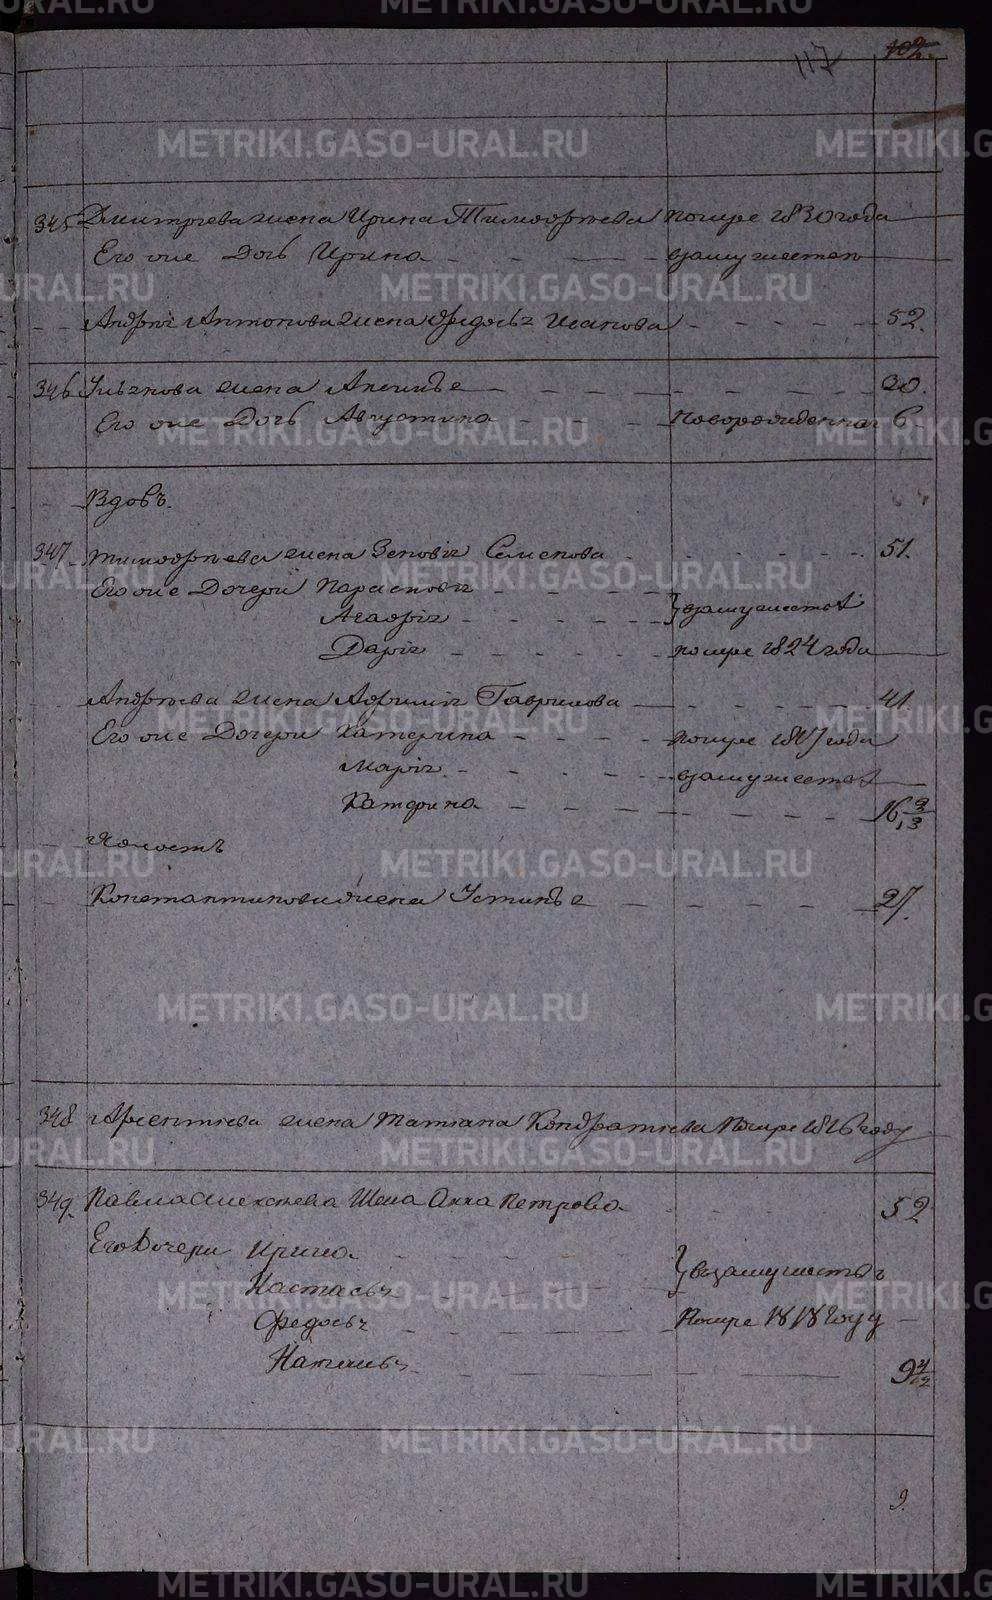 117 102
345 Дмитрѣева жена Ирина Тимофѣева помре 1830 года
Его же Дочь Ирина взамужестве
Андрѣя Антонова жена Федосья Исакова 52.
346 Ульянова жена Аксинья 20.
Его же Дочь Августина новорожденная 6.
Вдовъ.
347 Тимофѣева жена Зеновія Семенова 51.
Его же Дочери Парасковія
Агафія взамужества
Дарія помре 1824 года
Андрѣева жена Афимія Гаврилова 41.
Его же Дочери Катерина помре года
Марія взамужества
Катерина 16
Холостъ
Константинова жена Устинья 27.
348 Арсентіева жена Татіана Кондратіева помре 1826 году
349 Павла Алексѣева Жена Анна Петрова 52
Его Дочери Ирина
Настасья взамужествѣ
Федосья Помре 1818 году
Наталья 9
9.
METRIKI.GASO-URAL.RU